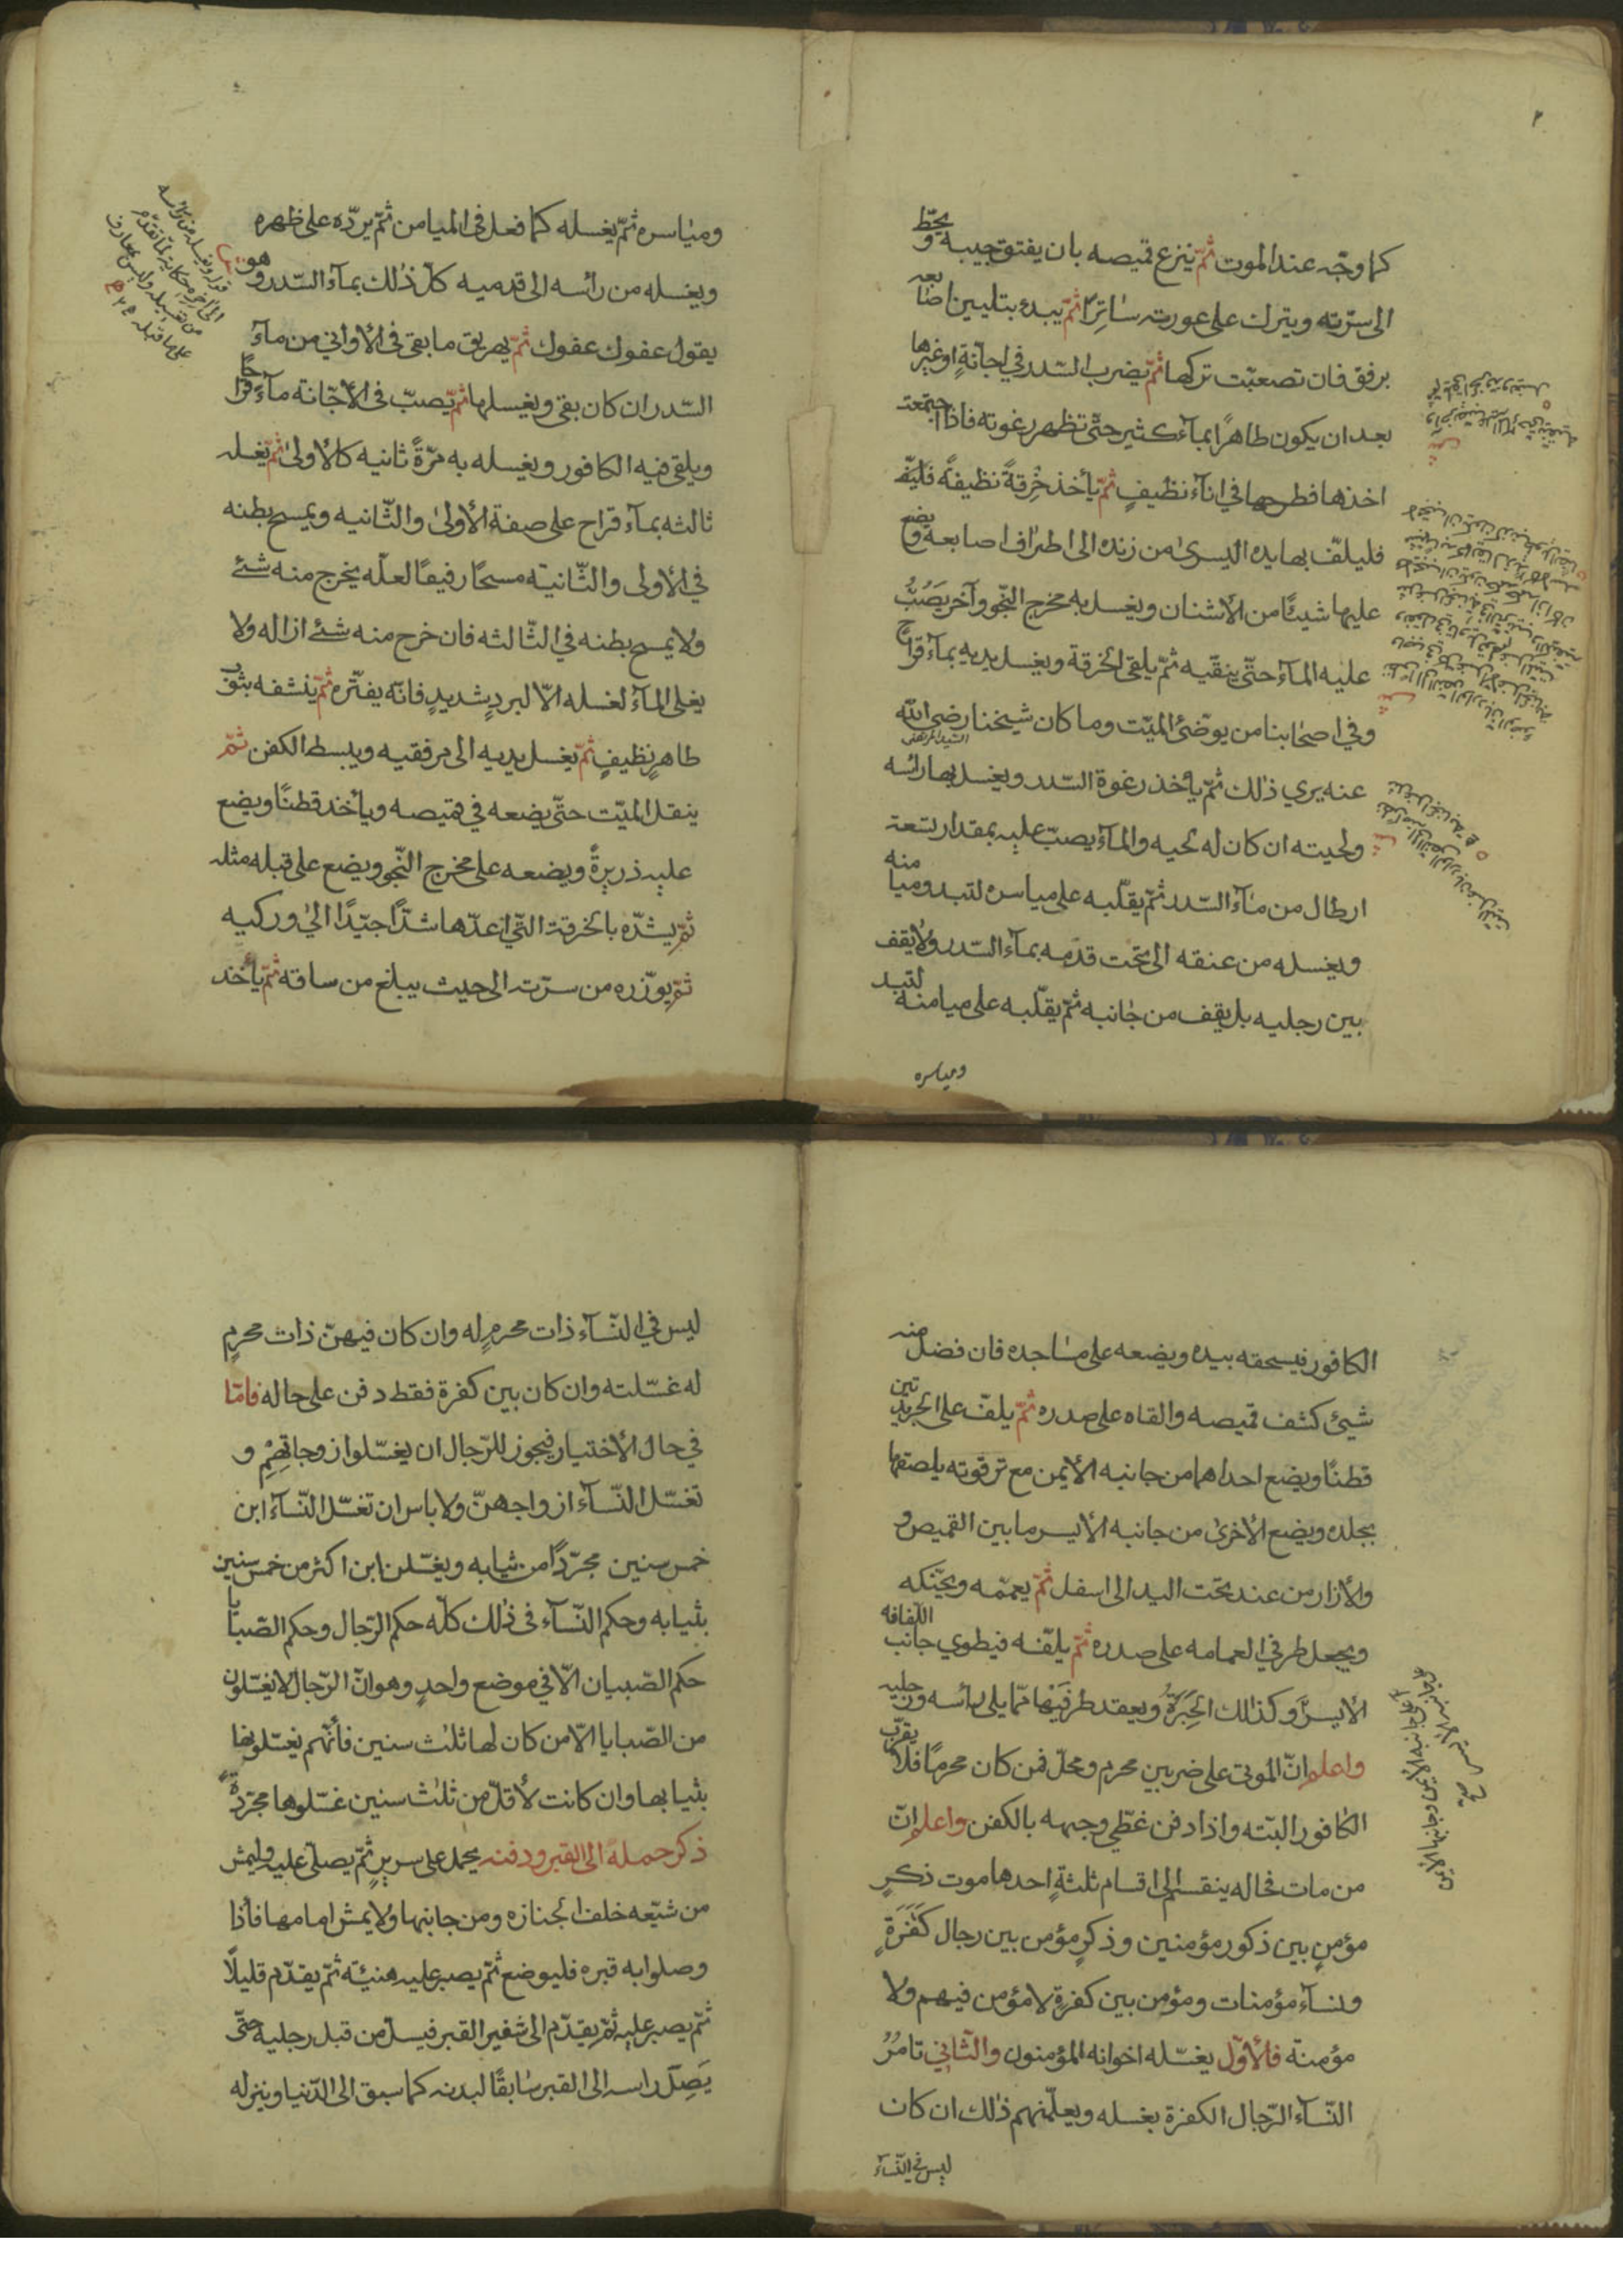 ٢
كما وجّه عند الموت ثمّ ينزع قميصه بان يفتق جيبه ويحطّ
الى سرّته ويترك على عورته ساترًا ثمّ يبدء بتليين اصابعه
برفق فان تصعبّت تركها ثمّ يضرب السّدر في اجانةٍ اوغيرها
بعد ان يكون طاهرًا بمآء كثير حتّى تظهر رغوته فاذا اجتمعت
اخذها فطرحها في انآء نظيفٍ ثمّ يأخذ خِرقةً نظيفةً
فليلفّ بها يده اليسرى من زنده الى اطراف اصابعه ويضع
عليها شيئًا من الأشنان ويغسل به مخرج النّجو وآخر يَصُبُّ
عليه المآء حتّى ينقّيه ثمّ يلقى الخرقة ويغسل يديه بمآء قراح
وفي اصحابنا من يوضّئ الميّت وما كان شيخنا رضي الله
السيد المرتضى
عنه يري ذلك ثمّ يأخذ رغوة السّدر ويغسل بها رائسه
ولحيته ان كان له لحيه والمآء يصبّ عليه بمقدار تسعة
ارطال من مآء السّدر ثمّ يقلّبه على مياسره لتبدو ميامنه
ويغسله من عنقه الى تحت قدمه بمآء السّدر ولا يقف
بين رجليه بل يقف من جانبه ثمّ يقلّبه على ميامنه لتبد
ومياسره
ومياسره ثمّ يغسله كما فعل في الميامن ثمّ يردّه على ظهره
ويغسله من رائسه الى قدميه كلّ ذلك بمآء السّدر وهو
يقول عفوك عفوك ثمّ يهريق ما بقى في الأواني من مآء
السّدر ان كان بقى ويغسلها ثمّ يصبّ في الأجّانة مآءً قراحًا
ويلقى فيه الكافور ويغسله به مرّةً ثانيه كالأولى ثمّ يغسله
ثالثه بمآء قراح على صفة الأولى والثّانيه ويمسح بطنه
في الأولى والثّانية مسحًا رفيقًا لعلّه يخرج منه شئ
ولا يمسح بطنه في الثّالثه فان خرج منه شئ ازاله ولا
يغلى المآء لغسله الّا لبردٍ شديدٍ فانّه يفتّره ثمّ ينشفه بثوب
طاهرٍ نظيفٍ ثمّ يغسل يديه الى مرفقيه ويبسط الكفن ثمّ
ينقل الميّت حتّى يضعه في قميصه ويأخذ قطنًا ويضع
عليه ذريرةً ويضعه على مخرج النّجو ويضع على قبله مثله
ثمّ يشدّه بالخرقة التّي اعدّها شدًّا جيّدًا الى وركيه
ثمّ يوزّره من سرّته الى حيث يبلغ من ساقه ثمّ يأخذ
الكافور فيسحقه بيده ويضعه على مساجده فان فضل منه
شيئ كشف قميصه والقاه على صدره ثمّ يلفّ على الجريدتين
قطنًا ويضع احداهما من جانبه الأيمن مع ترقوته يلصقها
بجلده ويضع الأخرى من جانبه الأيسر ما بين القميص و
والأزار من عند تحت اليد الى اسفل ثمّ يعمّمه ويحنّكه
ويجعل طرفي العمامه على صدره ثمّ يلفّه فيطوي جانب اللّفافه
الأيسر وكذلك الحِبَرَةُ ويعقد طرفيها ممّا يلى رأسه ورجليه
واعلم انّ الموتى على ضربين محرم ومحلّ فمن كان محرمًا فلا يقرّب
الكافور البتّه واذا دفن غطّي وجهه بالكفن واعلم انّ
من مات فحاله ينقسم الى اقسام ثلثةٍ احدها موت ذكرٍ
مؤمنٍ بين ذكور مؤمنين وذكرٍ مؤمن بين رجال كَفَرَةٍ
ونسآء مؤمنات ومؤمن بين كفرةٍ لا مؤمن فيهم ولا
مؤمنة فالأوّل يغسّله اخوانه المؤمنون والثّاني تامرُ
النّسآء الرّجال الكفرة بغسله ويعلّمنهم ذلك ان كان
ليس في النّسآء
ليس في النّسآء ذات محرمٍ له وان كان فيهنّ ذات محرمٍ
له غسّلته وان كان بين كفرة فقط دفن على حاله فامّا
في حال الأختيار فيجوز للرّجال ان يغسّلوا زوجاتهم و
تغسّل النّسآء ازواجهنّ ولا باس ان تغسّل النّسآء ابن
خمس سنين مجرّدًا من ثيابه ويغسّلن ابن اكثر من خمس سنين
بثيابه وحكم النّسآء في ذلك كلّه حكم الرّجال وحكم الصّبايا
حكم الصّبيان الّا في موضع واحدٍ وهو انّ الرّجال لا يغسّلون
من الصّبايا الّا من كان لها ثلث سنين فأنّهم يغسّلونها
بثيابها وان كانت لأقلّ من ثلث سنين غسّلوها مجرّدةً
ذكر حمله الى القبر ودفنه يحمل على سريرٍ ثمّ يصلّى عليه وليمش
من شيّعه خلف الجنازه ومن جانبها ولا يمش امامها فأذا
وصلوا به قبره فليوضع ثمّ يصبر عليه هنيئة ثمّ يقدّم قليلًا
ثمّ يصبر عليه ثمّ يقدّم الى شفير القبر فيسلّ من قبل رجليه حتّى
يَصِلَ راسه الى القبر سابقًا لبدنه كما سبق الى الدّنيا وينزله